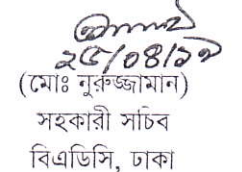 ২৫/০৪/১৭
(মোঃ নুরুজ্জামান)
সহকারী সচিব
বিএডিসি, ঢাকা